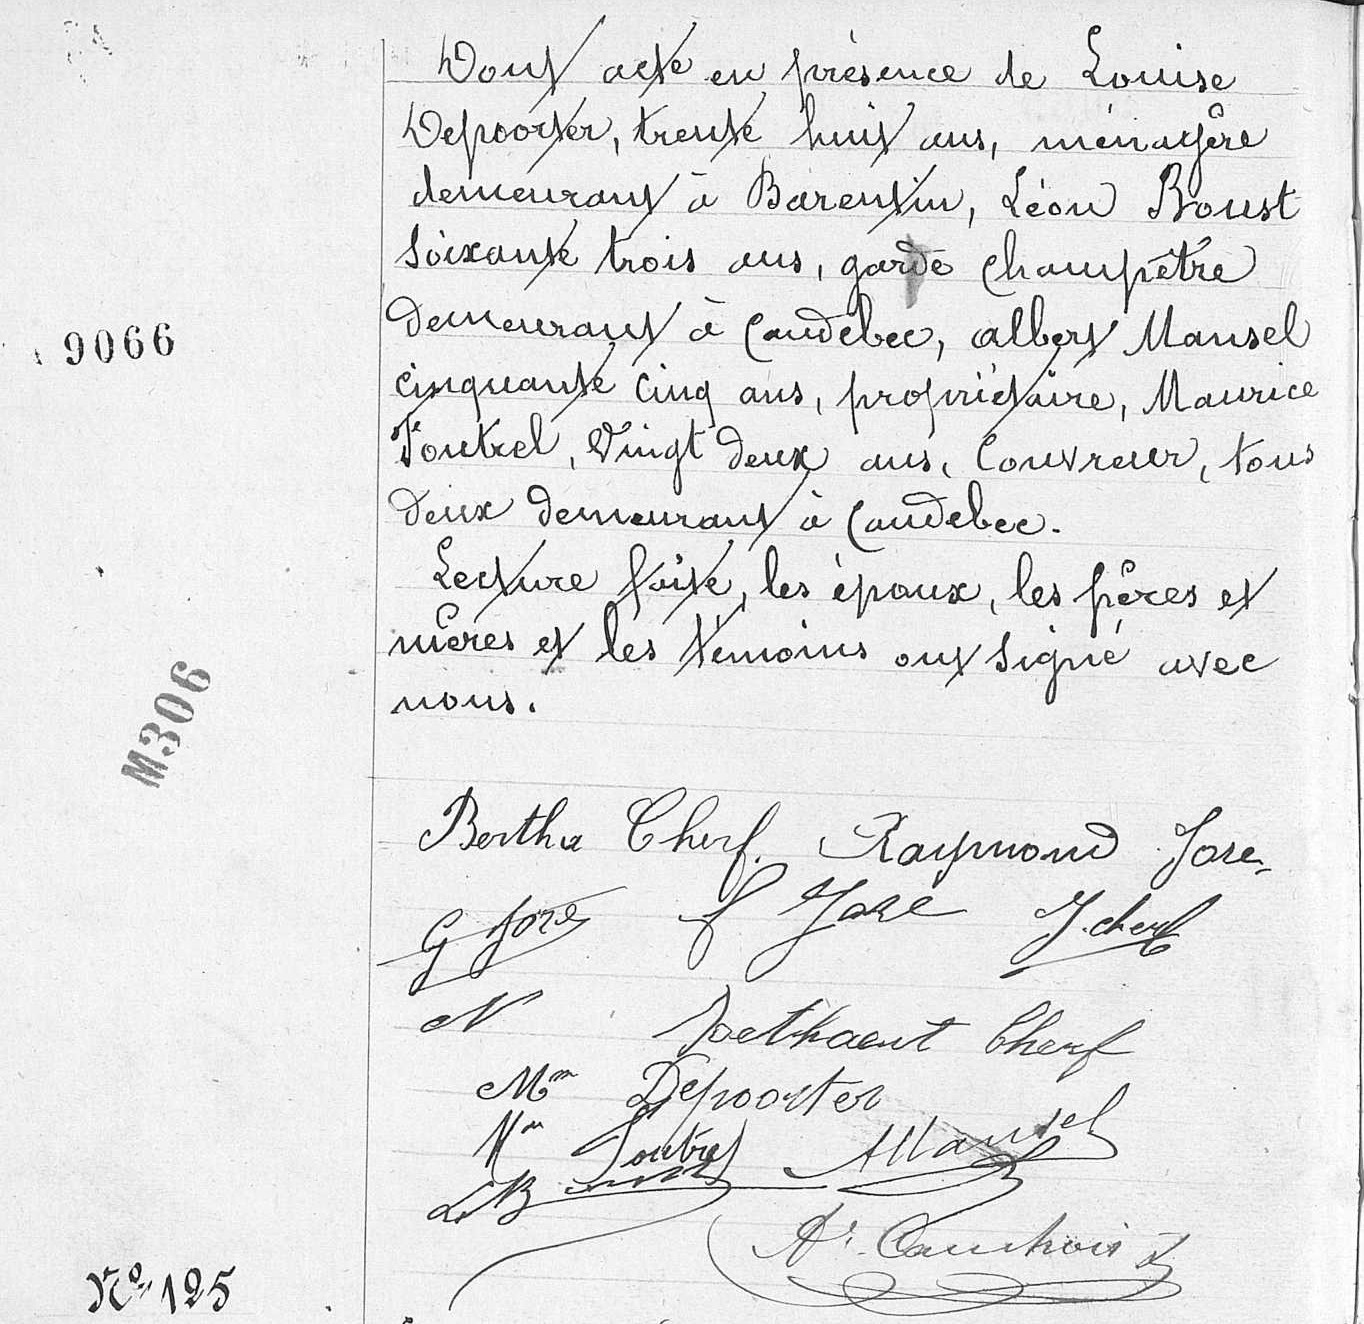 Dont acte en présence de Louise
Depoorter, trente huit ans, ménagère
demeurant à Barentin, Léon Boust
soixante trois ans, garde champêtre
demeurant à Caudebec, albert Mansel
cinquante cinq ans, propriétaire, Maurice
Toutrel, vingt deux ans, couvreur, tous
deux demeurant à Caudebec.
9066
Lecture faite, les époux, les pères et
mères et les témoins ont signé avec
nous.
M306
Bertha Cherf. Raymond Jore
G Jore f Jore J. cherf
N Cherf
Mme Depoorter
Mce Toutrel AMansel
L. Boust
Cauchois
No 125